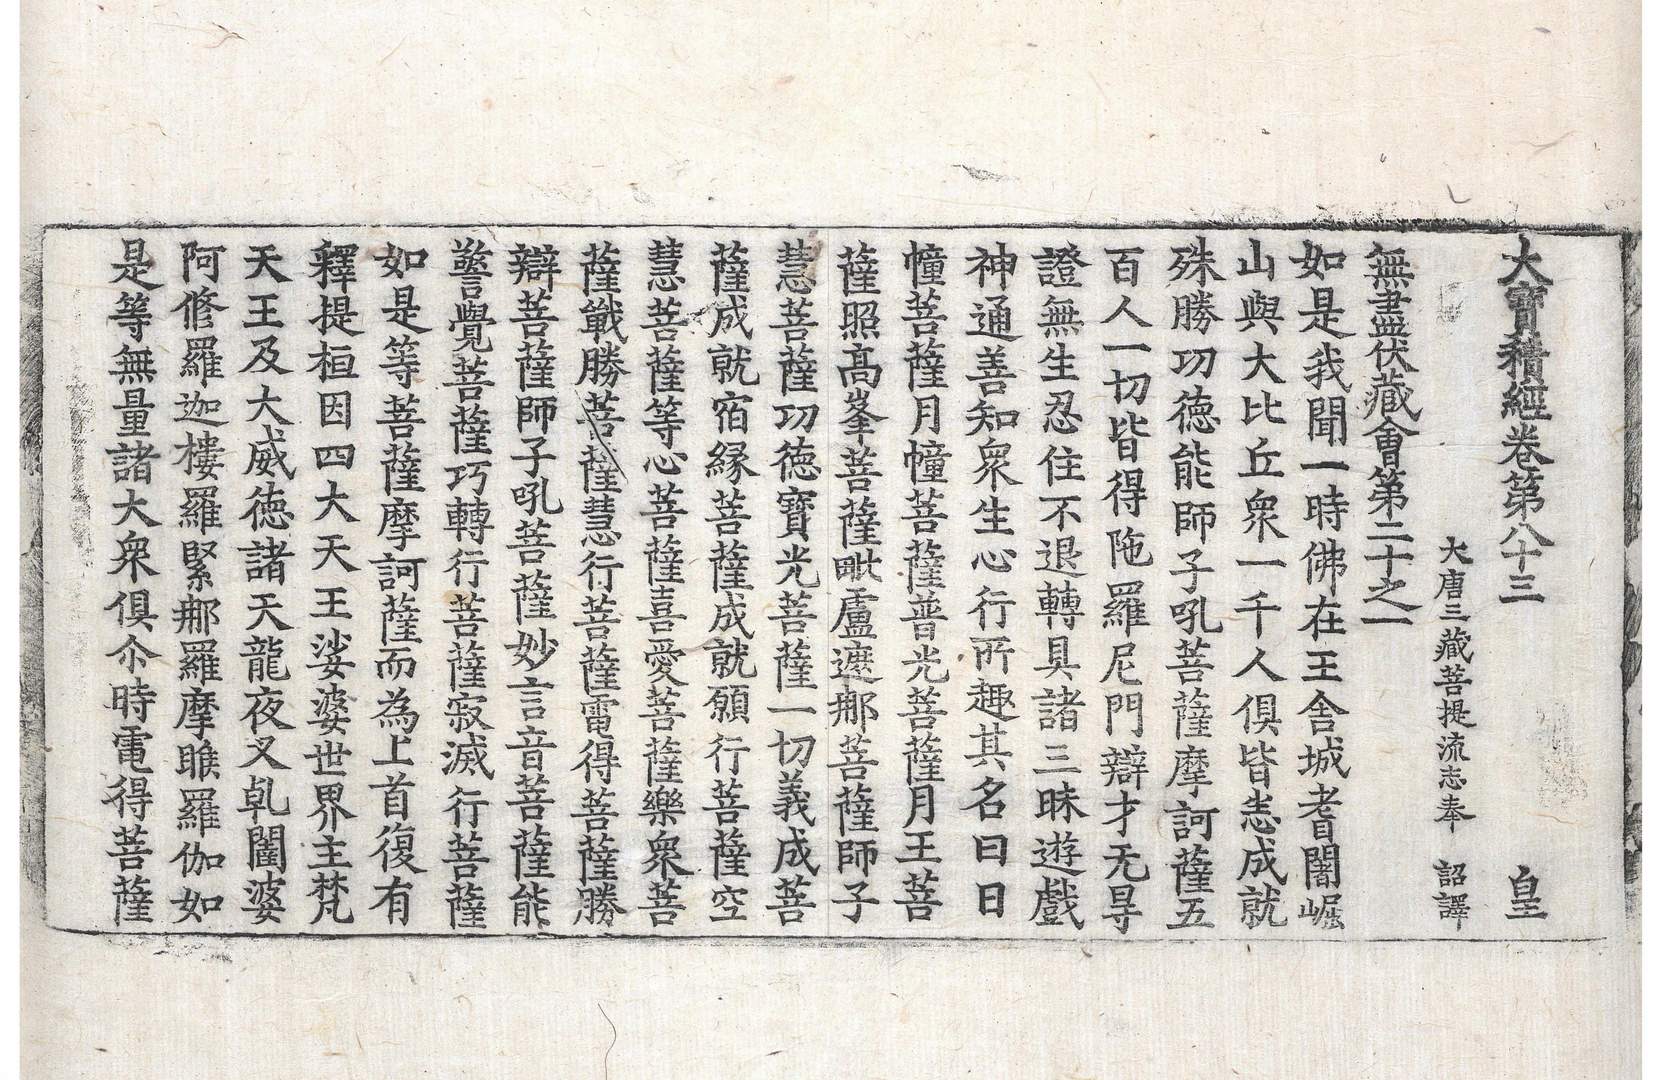 大寶積經卷第八十三 皇
大唐三藏菩提流志奉 詔譯
無盡伏藏會第二十之一
如是我聞一時佛在王舍城耆闍崛
山與大比丘衆一千人俱皆悉成就
殊勝功徳能師子吼菩薩摩訶薩五
百人一切皆得陁羅尼門辯才无㝵
證無生忍住不退轉具諸三昧遊戲
神通善知衆生心行所趣其名曰日
幢菩薩月幢菩薩普光菩薩月王菩
薩照高峯菩薩毗盧遮那菩薩師子
慧菩薩功徳寶光菩薩一切義成菩
薩成就宿緣菩薩成就願行菩薩空
慧菩薩等心菩薩喜愛菩薩樂衆菩
薩戰勝菩薩慧行菩薩電得菩薩勝
辯菩薩師子吼菩薩妙言音菩薩能
警覺菩薩巧轉行菩薩寂滅行菩薩
如是等菩薩摩訶薩而為上首復有
釋提桓因四大天王娑婆世界主梵
天王及大威徳諸天龍夜叉乹闥婆
阿脩羅迦樓羅緊那羅摩睺羅伽如
是等無量諸大衆俱尒時電得菩薩